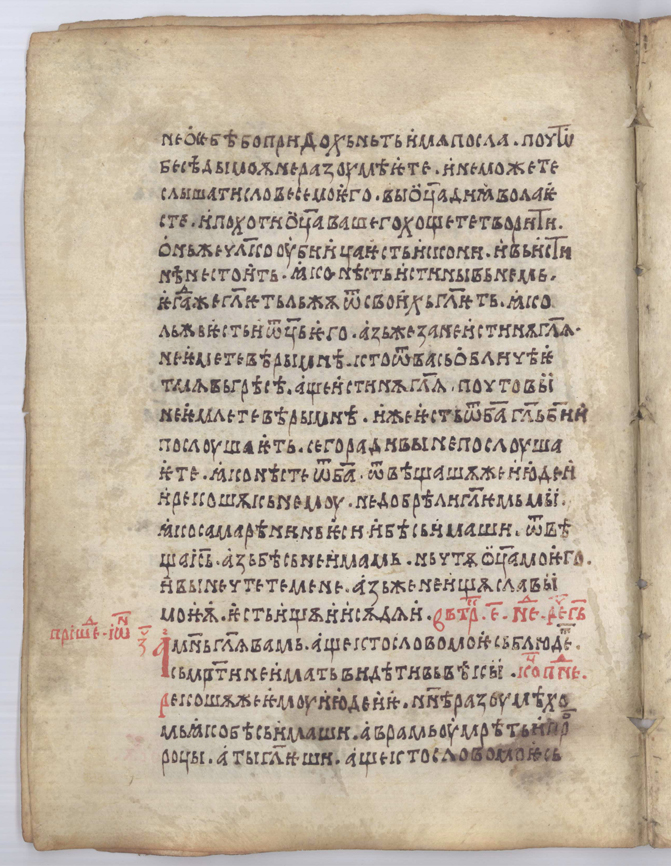 не ѻ себѣ бо придохь нь ть имѧ посла · почто
бесѣды моѫ не разоумѣѥте · и не можете
слышати словесе моѥго · вы ѻц҃а диꙗвола ѥ
сте · и похоти ѻц҃а вашего хощете творити ·
ѻнь же чл҃кооубиица ѥсть искони · и вь исти
нѣ не стоить · ꙗко нѣсть истины вь немь ·
ѥгдаже гл҃ѥть льжѫ ѿ своихь гл҃ѥть · ꙗко
льжь ѥсть и ѿц҃ь ѥго · азь же зане истинѫ гл҃ѧ ·
не имете вѣры мнѣ · кто ѿ вась ѻбличѣѥ
ть мѧ вь грѣсѣ · аще истинѫ гл҃ѧ · почто вы
не ѥмлете вѣры мнѣ · иже ѥсть ѿ ба҃ гл҃ь бж҃ии
послоушаѥть · сего ради вы не послоуша
ѥте · ꙗко нѣсте ѿ ба҃ · ѿвѣщашѧ же июдеи
и рекошѧ кь немоу · не добрѣ ли гл҃ѥмь мы ·
ꙗко самарѣнинь ѥси и бѣсь имаши · ѿвѣ
ща іс҃ь · азь бѣсь не имамь · нь чтѫ ѻц҃а моѥго ·
и вы не чтете мене · азь же не ищѫ славы
моѥѫ · ѥсть ищѫи и сѫдѧи · вьтр · е · не · рече гь
прїиде · їѡ · з҃ аминь гл҃ѧ вамь · аще кто слово моѥ сьблюде ·
сьмр҃ти не имать видѣти вь вѣкы · ко пне ·
рекошѧ же ѥмоу июдеиѥ · нн҃ѣ разоумѣхо
мь ꙗко бѣсь имаши · аврамь оумрѣть и про
роцы · а ты гл҃ѥши · аще кто слово моѥ сь